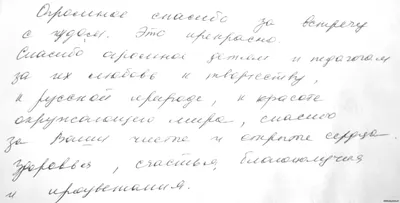 Огромное спасибо за встречу
с чудом. Это прекрасно.
Спасибо огромное детям и педагогам
за их любовь к творчеству,
к русской природе, к красоте
окружающего мира, спасибо
за Ваши чистые и открытые сердца.
Здоровья, счастья, благополучия
и процветания.